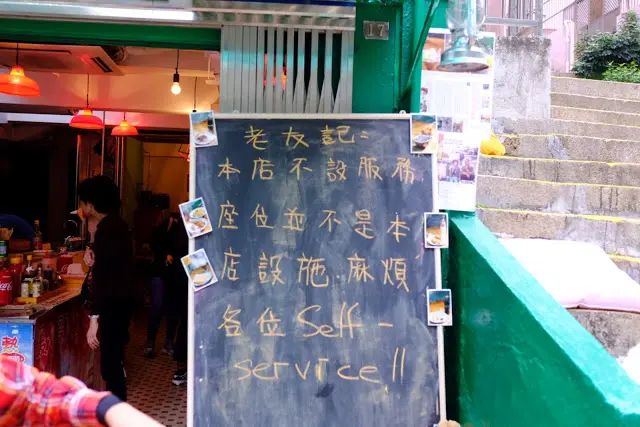 17
老友記：
本店不設服務
座位並不是本
店設施.麻煩
各位Self-
service!!